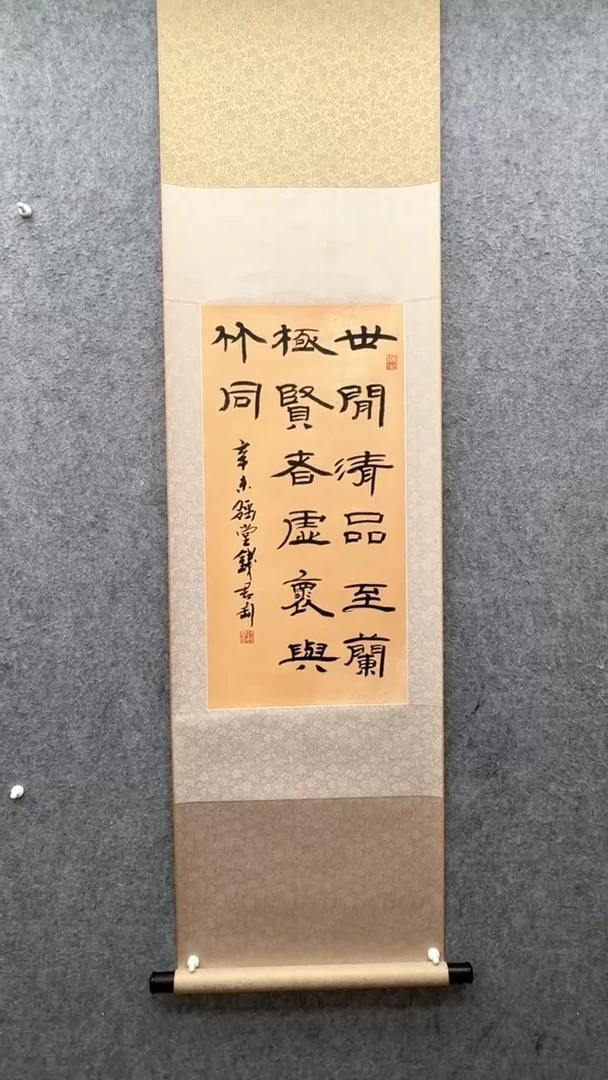 世間清品至蘭
極賢者虛襄與
竹同
辛未 堂錢君匋